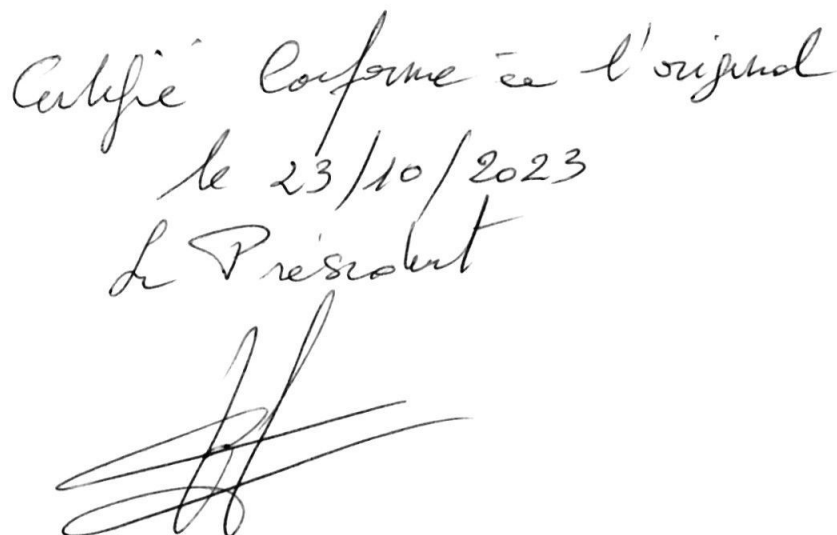 Certifié Conforme à l'original
le 23/10/2023
Le Président